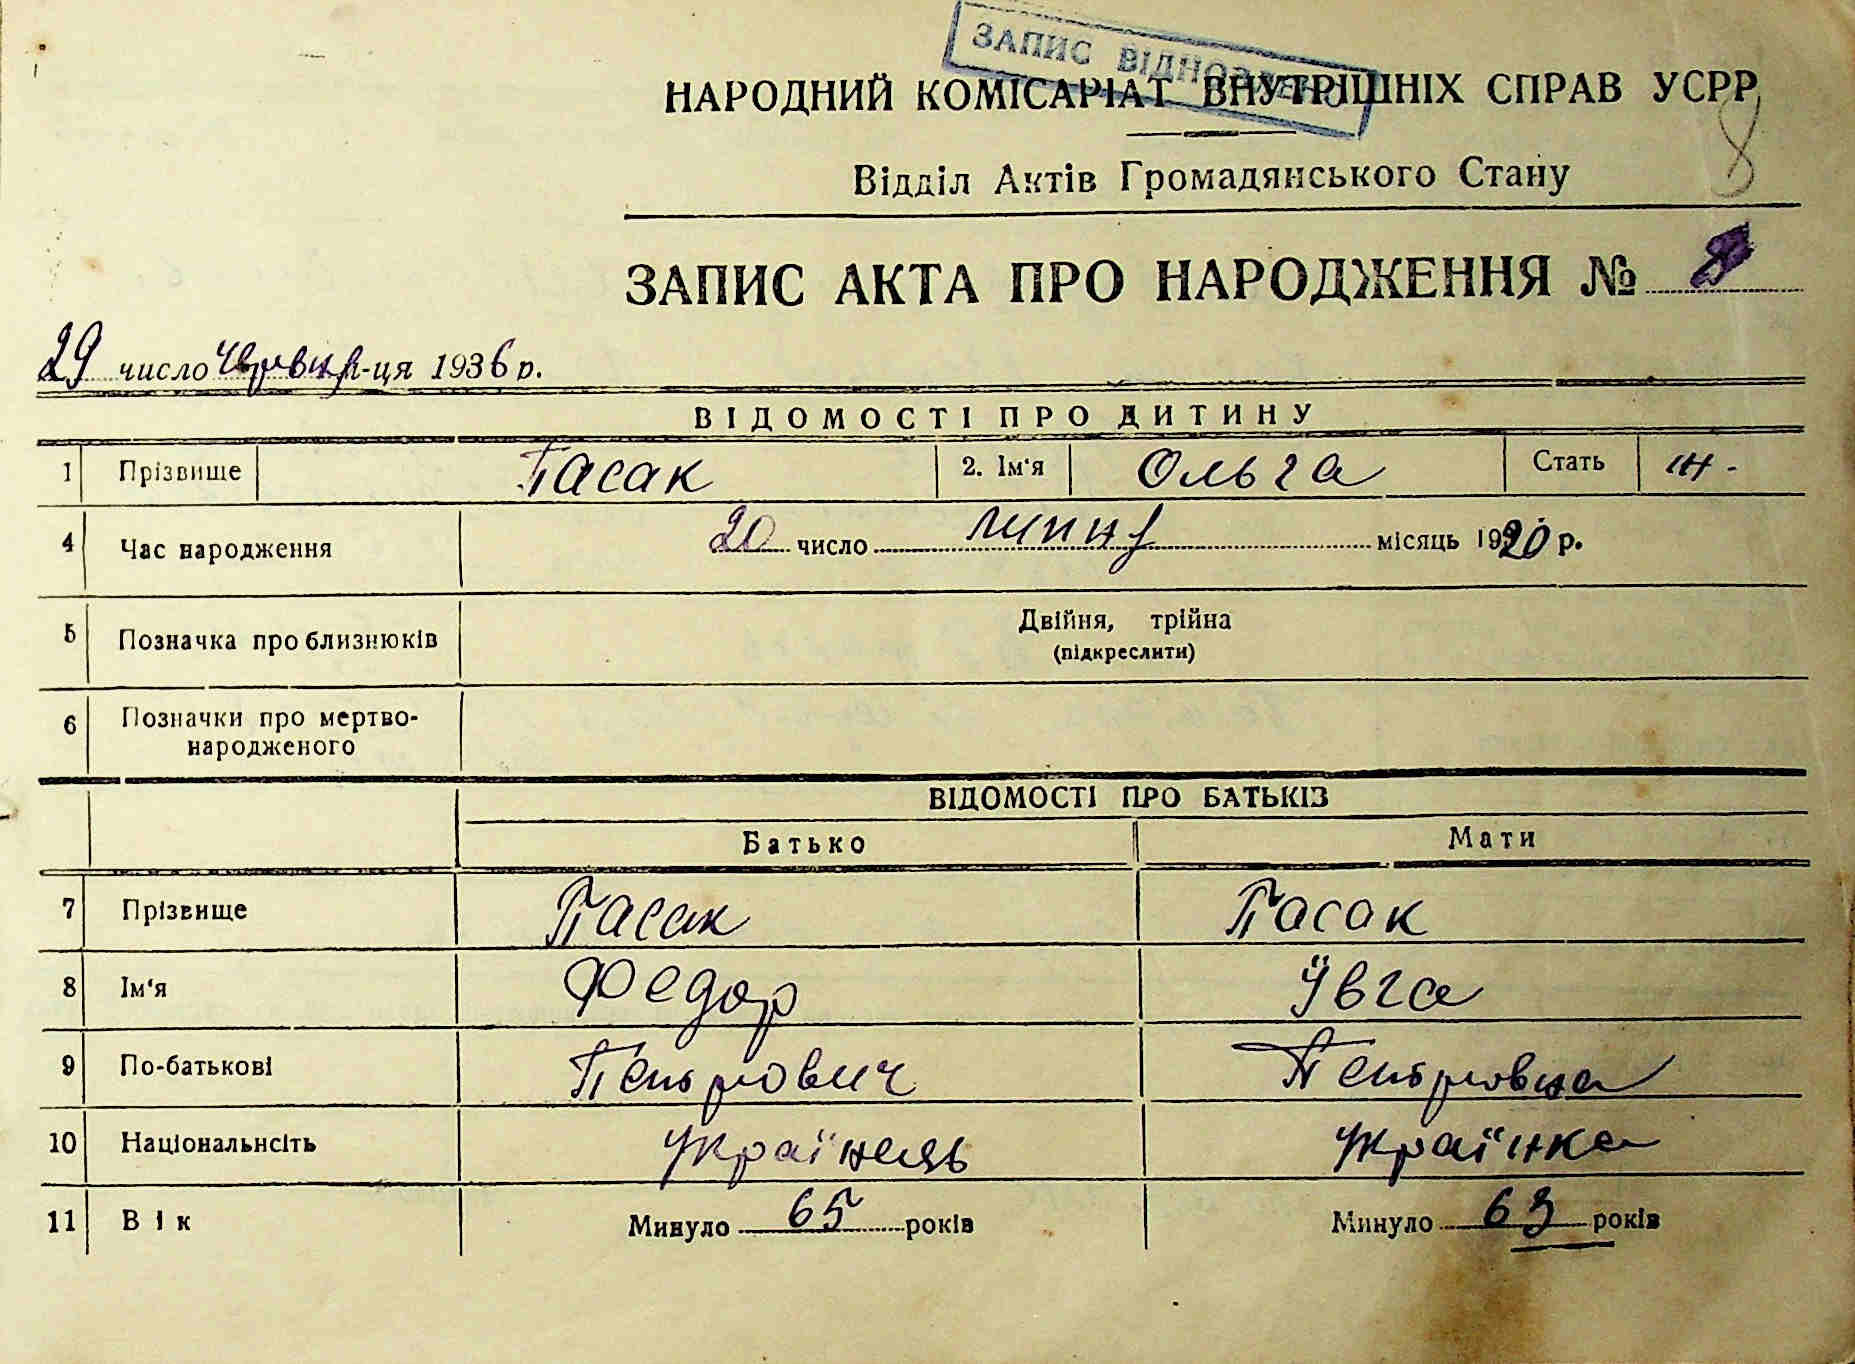 ЗАПИС ВІДНОВЛЕНО
НАРОДНИЙ КОМІСАРІАТ ВНУТРІШНІХ СПРАВ УСРР
8
Відділ Актів Громадянського Стану
ЗАПИС АКТА ПРО НАРОДЖЕННЯ № 8
29 число червня м-ця 1936 р.
ВІДОМОСТІ ПРО ДИТИНУ
1 Прізвище Пасак 2. Ім'я Ольга Стать Ж.
4 Час народження 20 число липня місяць 1920 р.
5 Позначка про близнюків Двійня, трійна
(підкреслити)
6 Позначки про мертво-
народженого
ВІДОМОСТІ ПРО БАТЬКІВ
Батько Мати
7 Прізвище Пасак Пасак
8 Ім'я Федор Ївга
9 По-батькові Петрович Петровна
10 Національнсіть Українець Українка
11 Вік Минуло 65 років Минуло 63 років